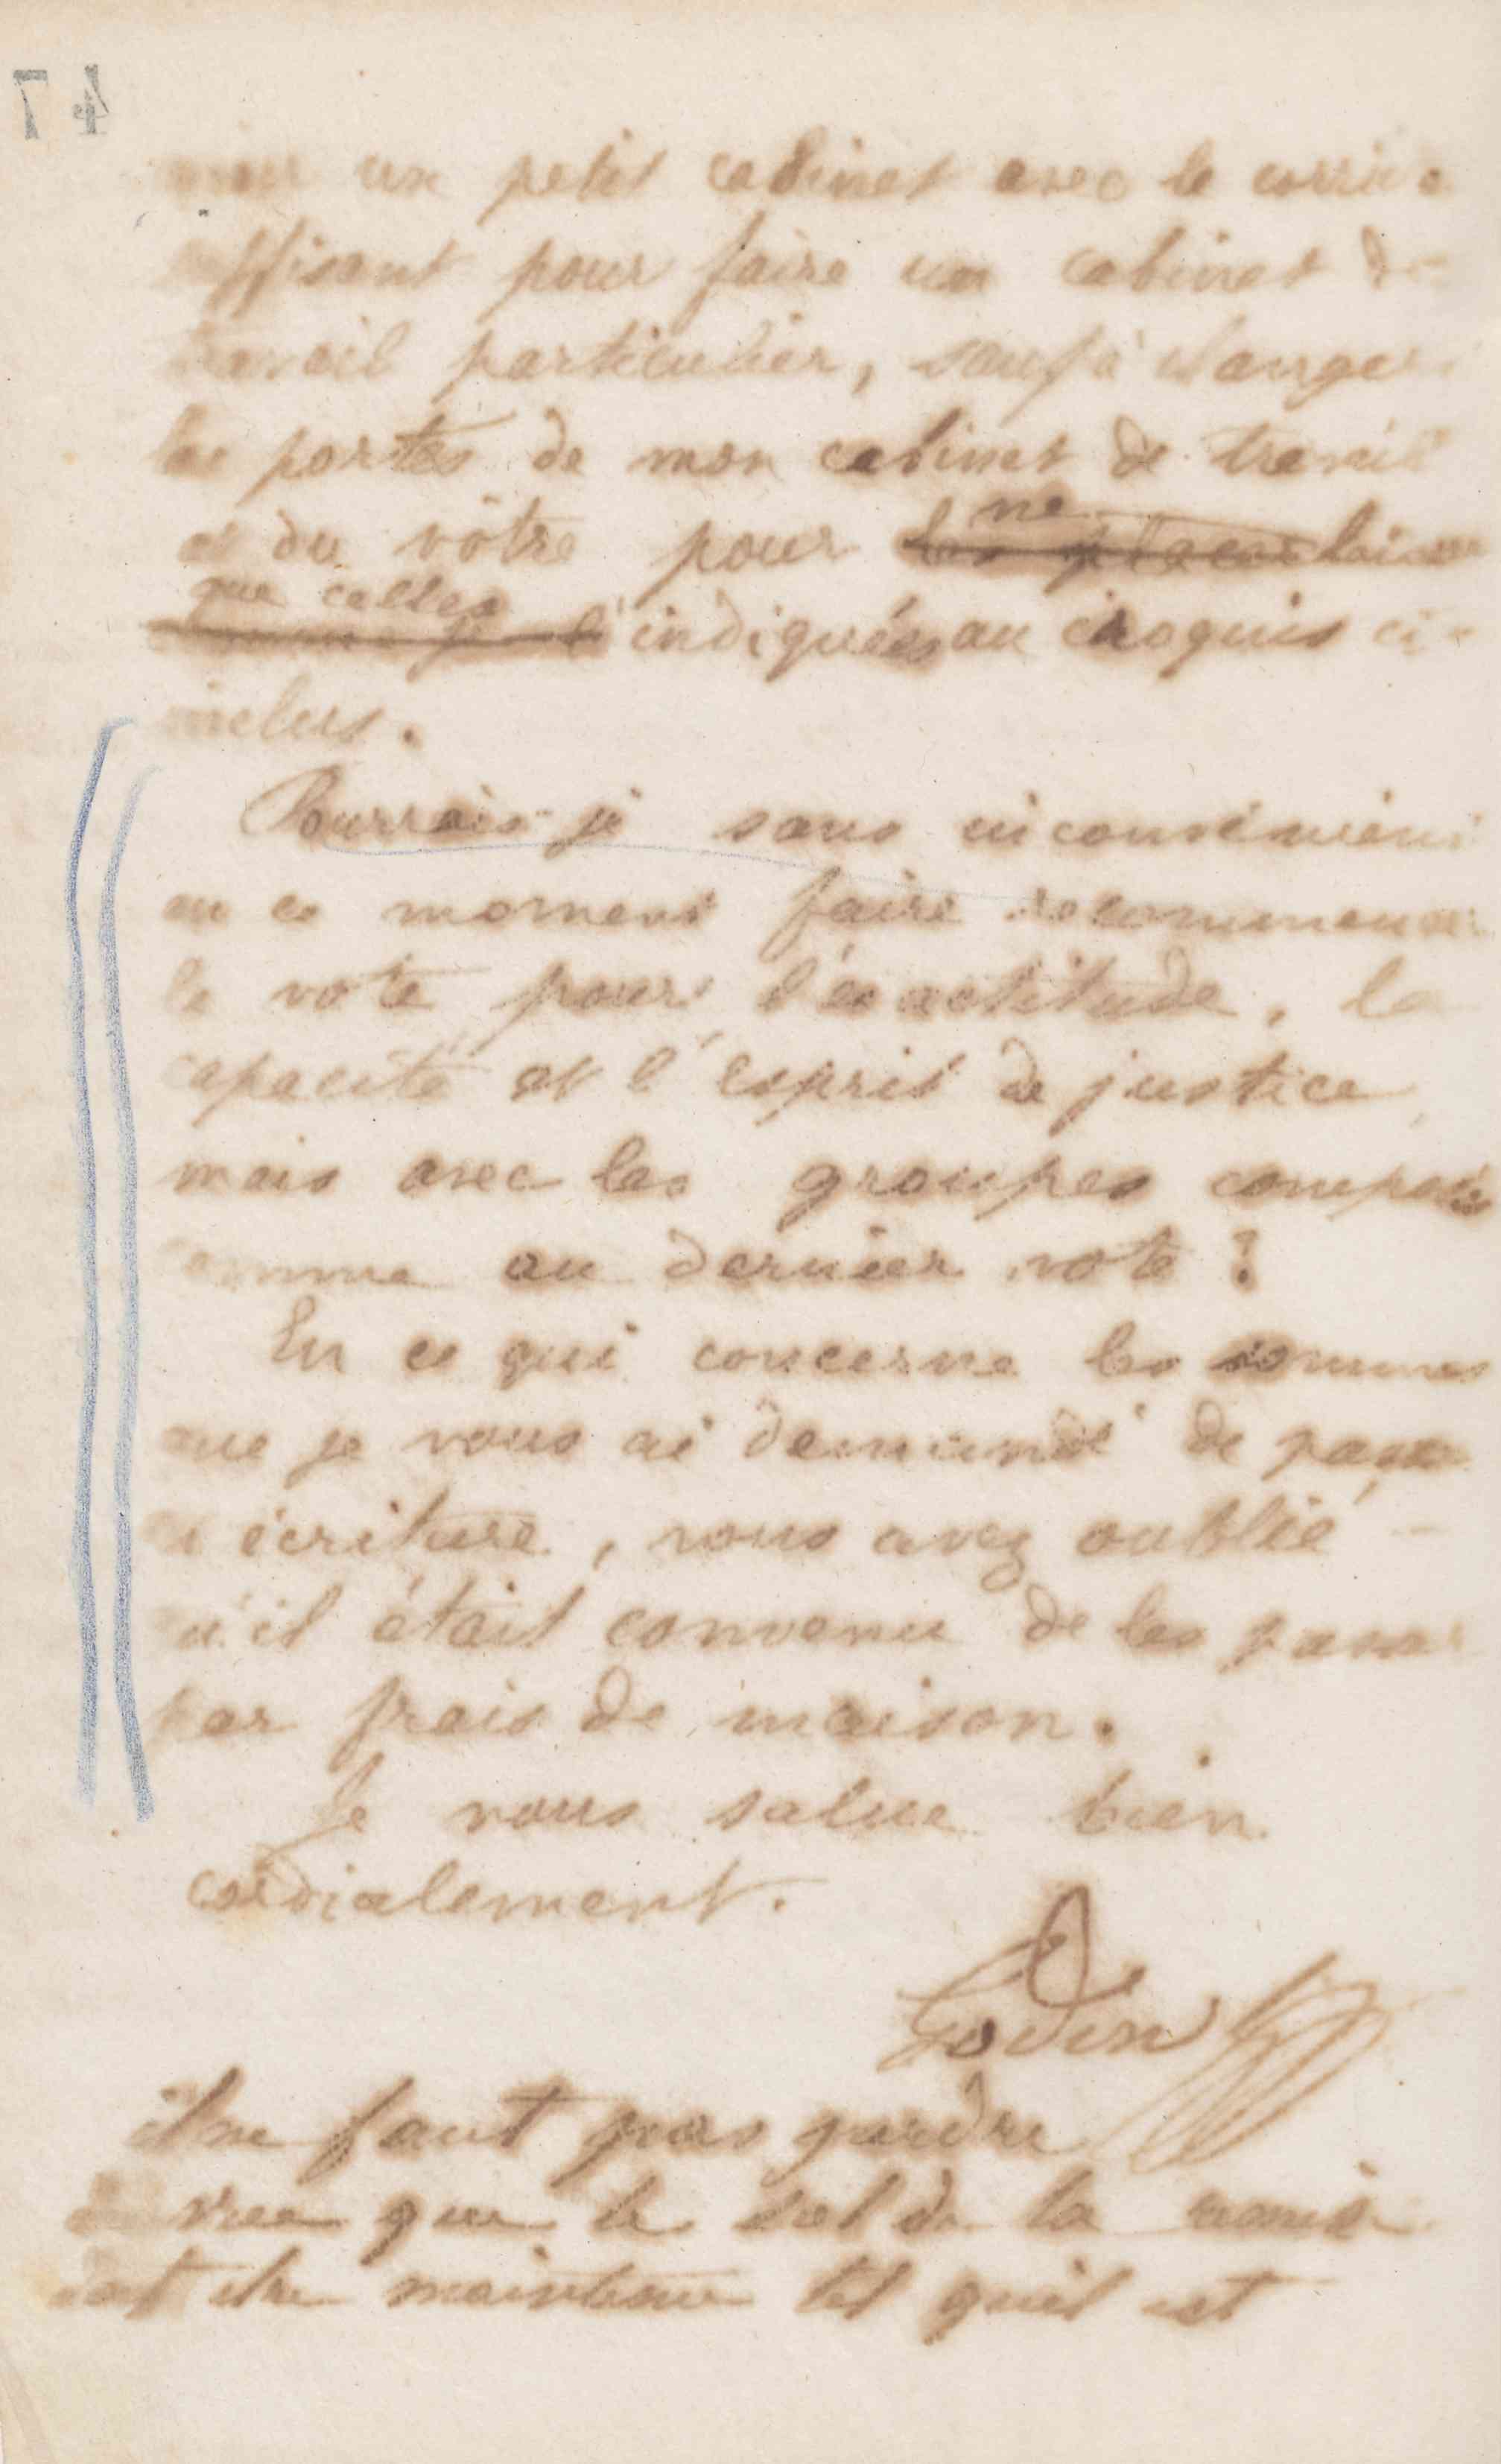 47
un petit cabinet avec le
suffisant pour faire un cabinet de
travail particulier, sauf à changer
les portes de mon cabinet de travail
ne
et du vôtre pour
que celles
indiquées au croquis ci-
inclus.
Pourrais-je sans inconvénient
en ce moment faire recommencer
le vote pour l'exactitude, la
capacité et l'esprit de justice,
mais avec les groupes composés
comme au dernier vote ?
En ce qui concerne les sommes
que je vous ai demandé de passer
en écriture, vous avez oublié
qu'il était convenu de les passer
par frais de maison.
Je vous salue bien
cordialement.
Godin
il ne faut pas perdre
de vue que le sol de la
doit être maintenu tel qu'il est